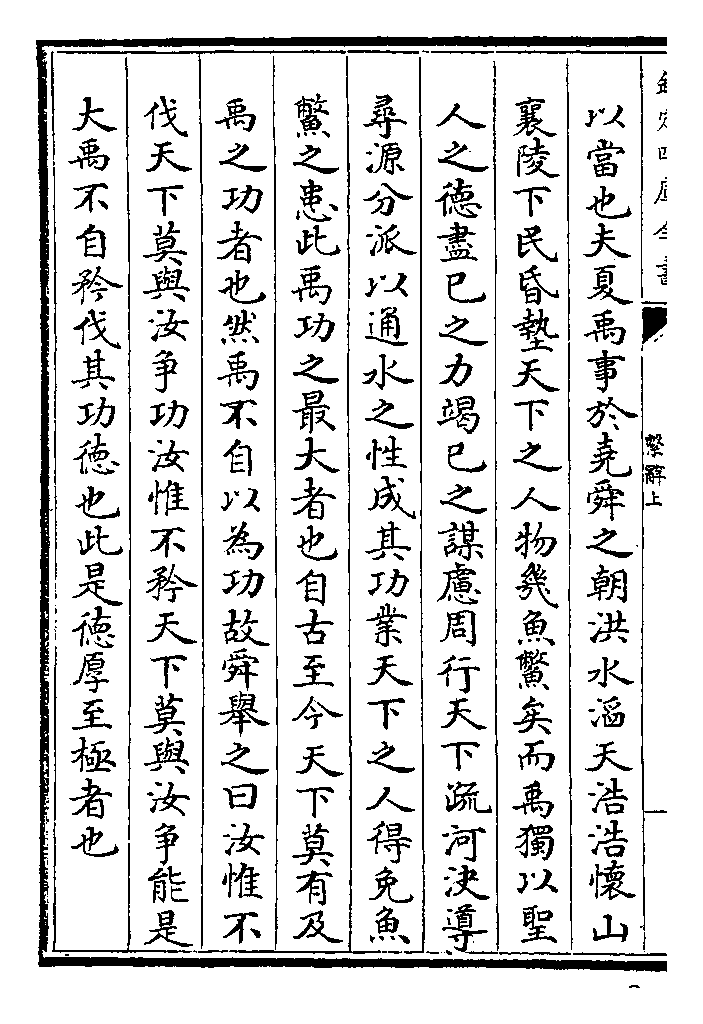 欽定四庫全書
繫辭上
以當也夫夏禹事於堯舜之朝洪水滔天浩浩懷山
襄陵下民昏墊天下之人物幾魚鱉矣而禹獨以聖
人之德盡已之力竭已之謀慮周行天下疏河決導
尋源分派以通水之性成其功業天下之人得免魚
鱉之患此禹功之最大者也自古至今天下莫有及
禹之功者也然禹不自以為功故舜舉之曰汝惟不
伐天下莫與汝争功汝惟不矜天下莫與汝争能是
大禹不自矜伐其功德也此是德厚至極者也